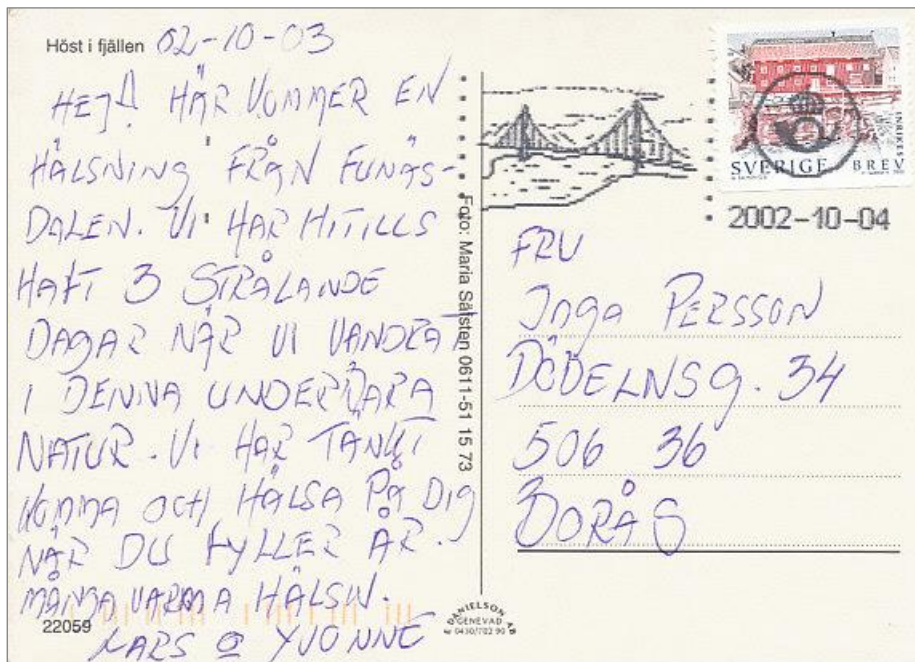 Höst i fjällen 02-10-03
HEJ! HÄR KOMMER EN
HÄLSNING FRÅN FUNÄS-
DALEN. VI HAR HITILLS
HAFT 3 STRÅLANDE
DAGAR NÄR VI VANDRAT
I DENNA UNDERBARA
NATUR. VI HAR TÄNKT
KOMMA OCH HÄLSA PÅ DIG
NÄR DU FYLLER ÅR.
MÅNGA VARMA HÄLSN.
LARS O YVONNE
22059
Foto: Maria Sälsten 0611-51 15 73
DANIELSON AB
GENEVAD
0430/702 90
SVERIGE BREV
INRIKES
2002-10-04
FRU
Inga PERSSON
34
506 36
BORÅS